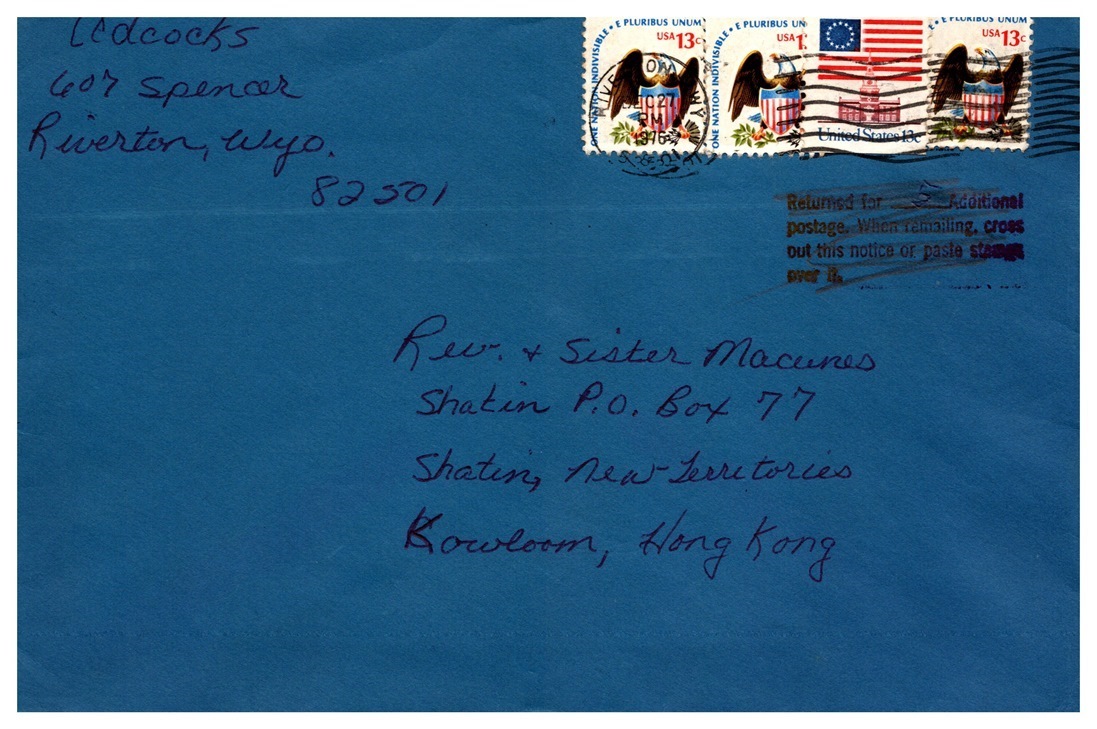 607 Spencer
Riverton, Wyo.
82501
ONE NATION INDIVISIBLE • E PLURIBUS UNUM
USA 13c
ONE NATION INDIVISIBLE • E PLURIBUS UN
USA 1
United States 13c
E PLURIBUS UNUM
USA 13c
DEC 27
PM
1976
Returned for Additional
postage. When remailing, cross
out this notice or paste stamps
over it.
Rev. + Sister Macunes
Shatin P.O. Box 77
Shatin, New Territories
Kowloom, Hong Kong